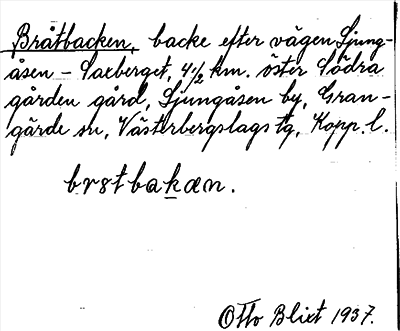 Bråtbacken, backe efter vägen Ljung-
åsen - Saxberget, 4 1/2 km. öster Södra
gården gård, Ljungåsen by, Gran-
gärde sn, Västerbergslags tg, Kopp. l.
brstbakæn.
Otto Blixt 1937.